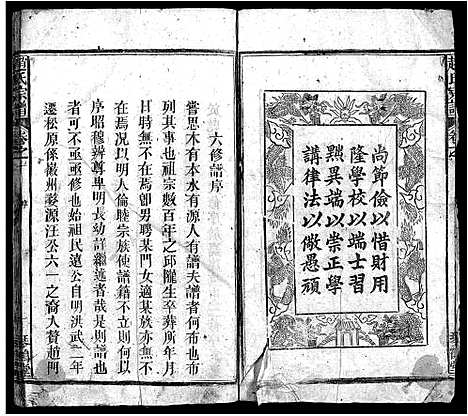 尚節儉以惜財用
隆學校以端士習
黜異端以崇正學
講律法以儆愚頑
六修譜序
嘗思木有本水有源人有譜夫譜者何布也布
列其事也祖宗數百年之邱隴生卒葬所年月
日時無不在焉卽男聘某門女適某族亦無不
在焉况以明人倫睦宗族使譜籍不立則何以
序昭穆辨尊卑明長幼詳繼遷者哉是則
序不可不亟亟修也始祖民遠公自明洪武二年
遷松原係徽州婺源汪公六一之裔入贅趙門
趙氏宗譜
卷之一